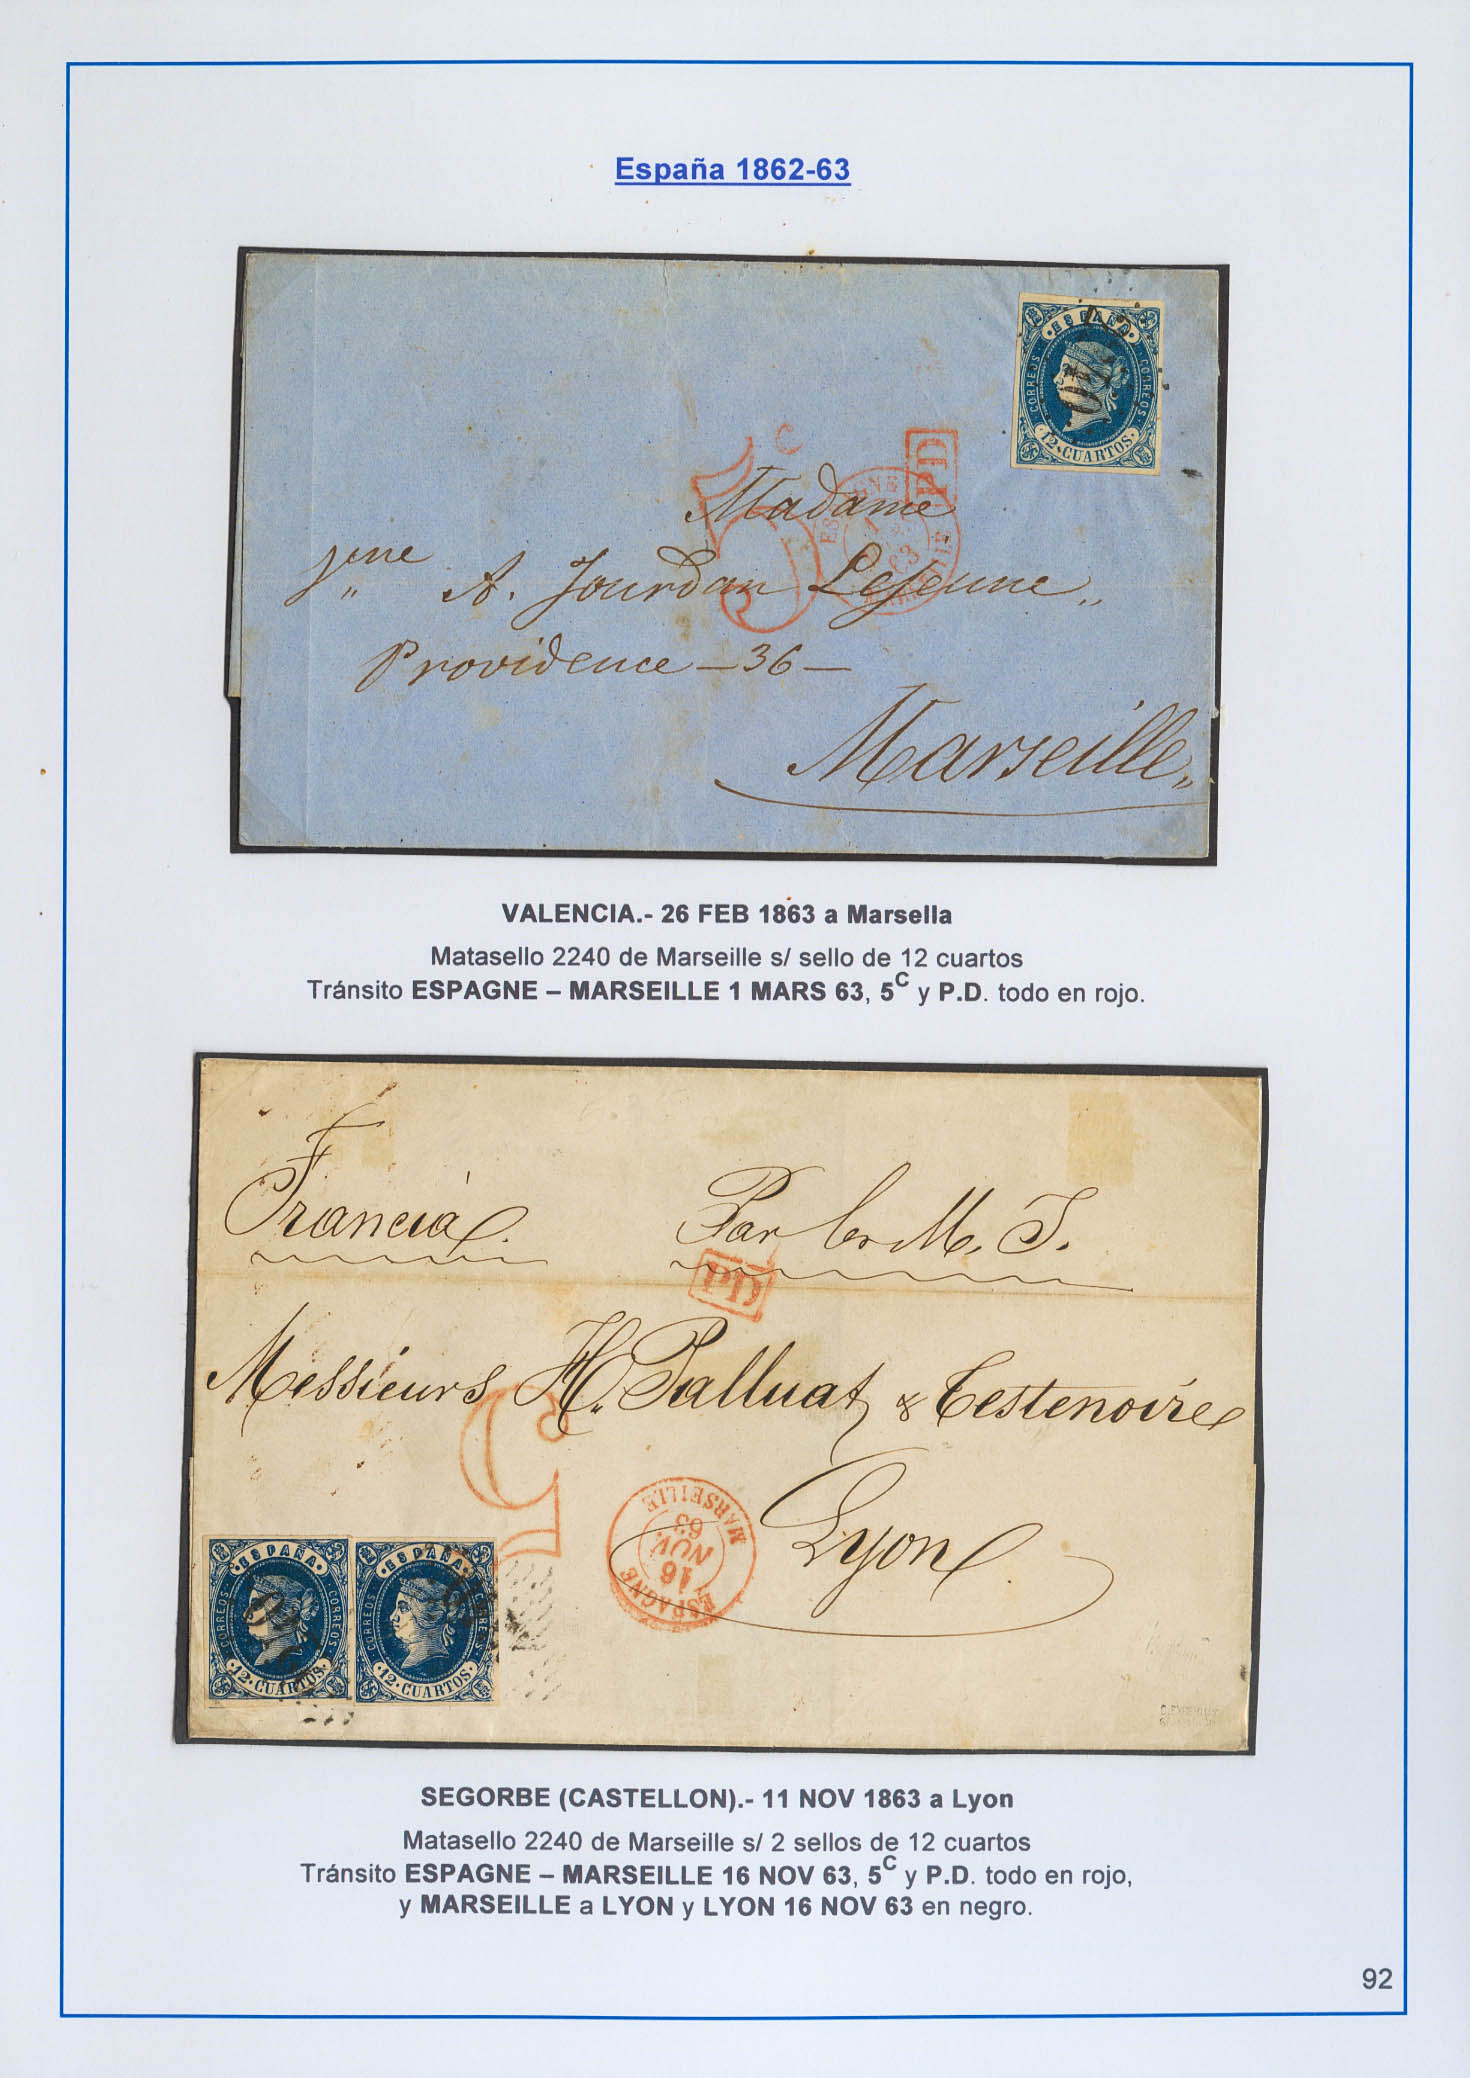 España 1862-63
ESPAÑA
CORREOS
CORREOS
12 CUARTOS
5 C
PD
ESPAGNE
1
63
MARSEILLE
Madame
Jeune
A. Jourdan Lejeune
Providence - 36 -
Marseille
VALENCIA.- 26 FEB 1863 a Marsella
Matasello 2240 de Marseille s/ sello de 12 cuartos
Tránsito ESPAGNE – MARSEILLE 1 MARS 63, 5C y P.D. todo en rojo.
Francia
Par
M. J.
PD
Messieurs H. Palluat & Testenoire
Lyon
5
ESPAGNE
16
NOV.
63
MARSEILLE
ESPAÑA
CORREOS
CORREOS
12 CUARTOS
ESPAÑA
CORREOS
CORREOS
12 CUARTOS
SEGORBE (CASTELLON).- 11 NOV 1863 a Lyon
Matasello 2240 de Marseille s/ 2 sellos de 12 cuartos
Tránsito ESPAGNE – MARSEILLE 16 NOV 63, 5C y P.D. todo en rojo,
y MARSEILLE a LYON y LYON 16 NOV 63 en negro.
92